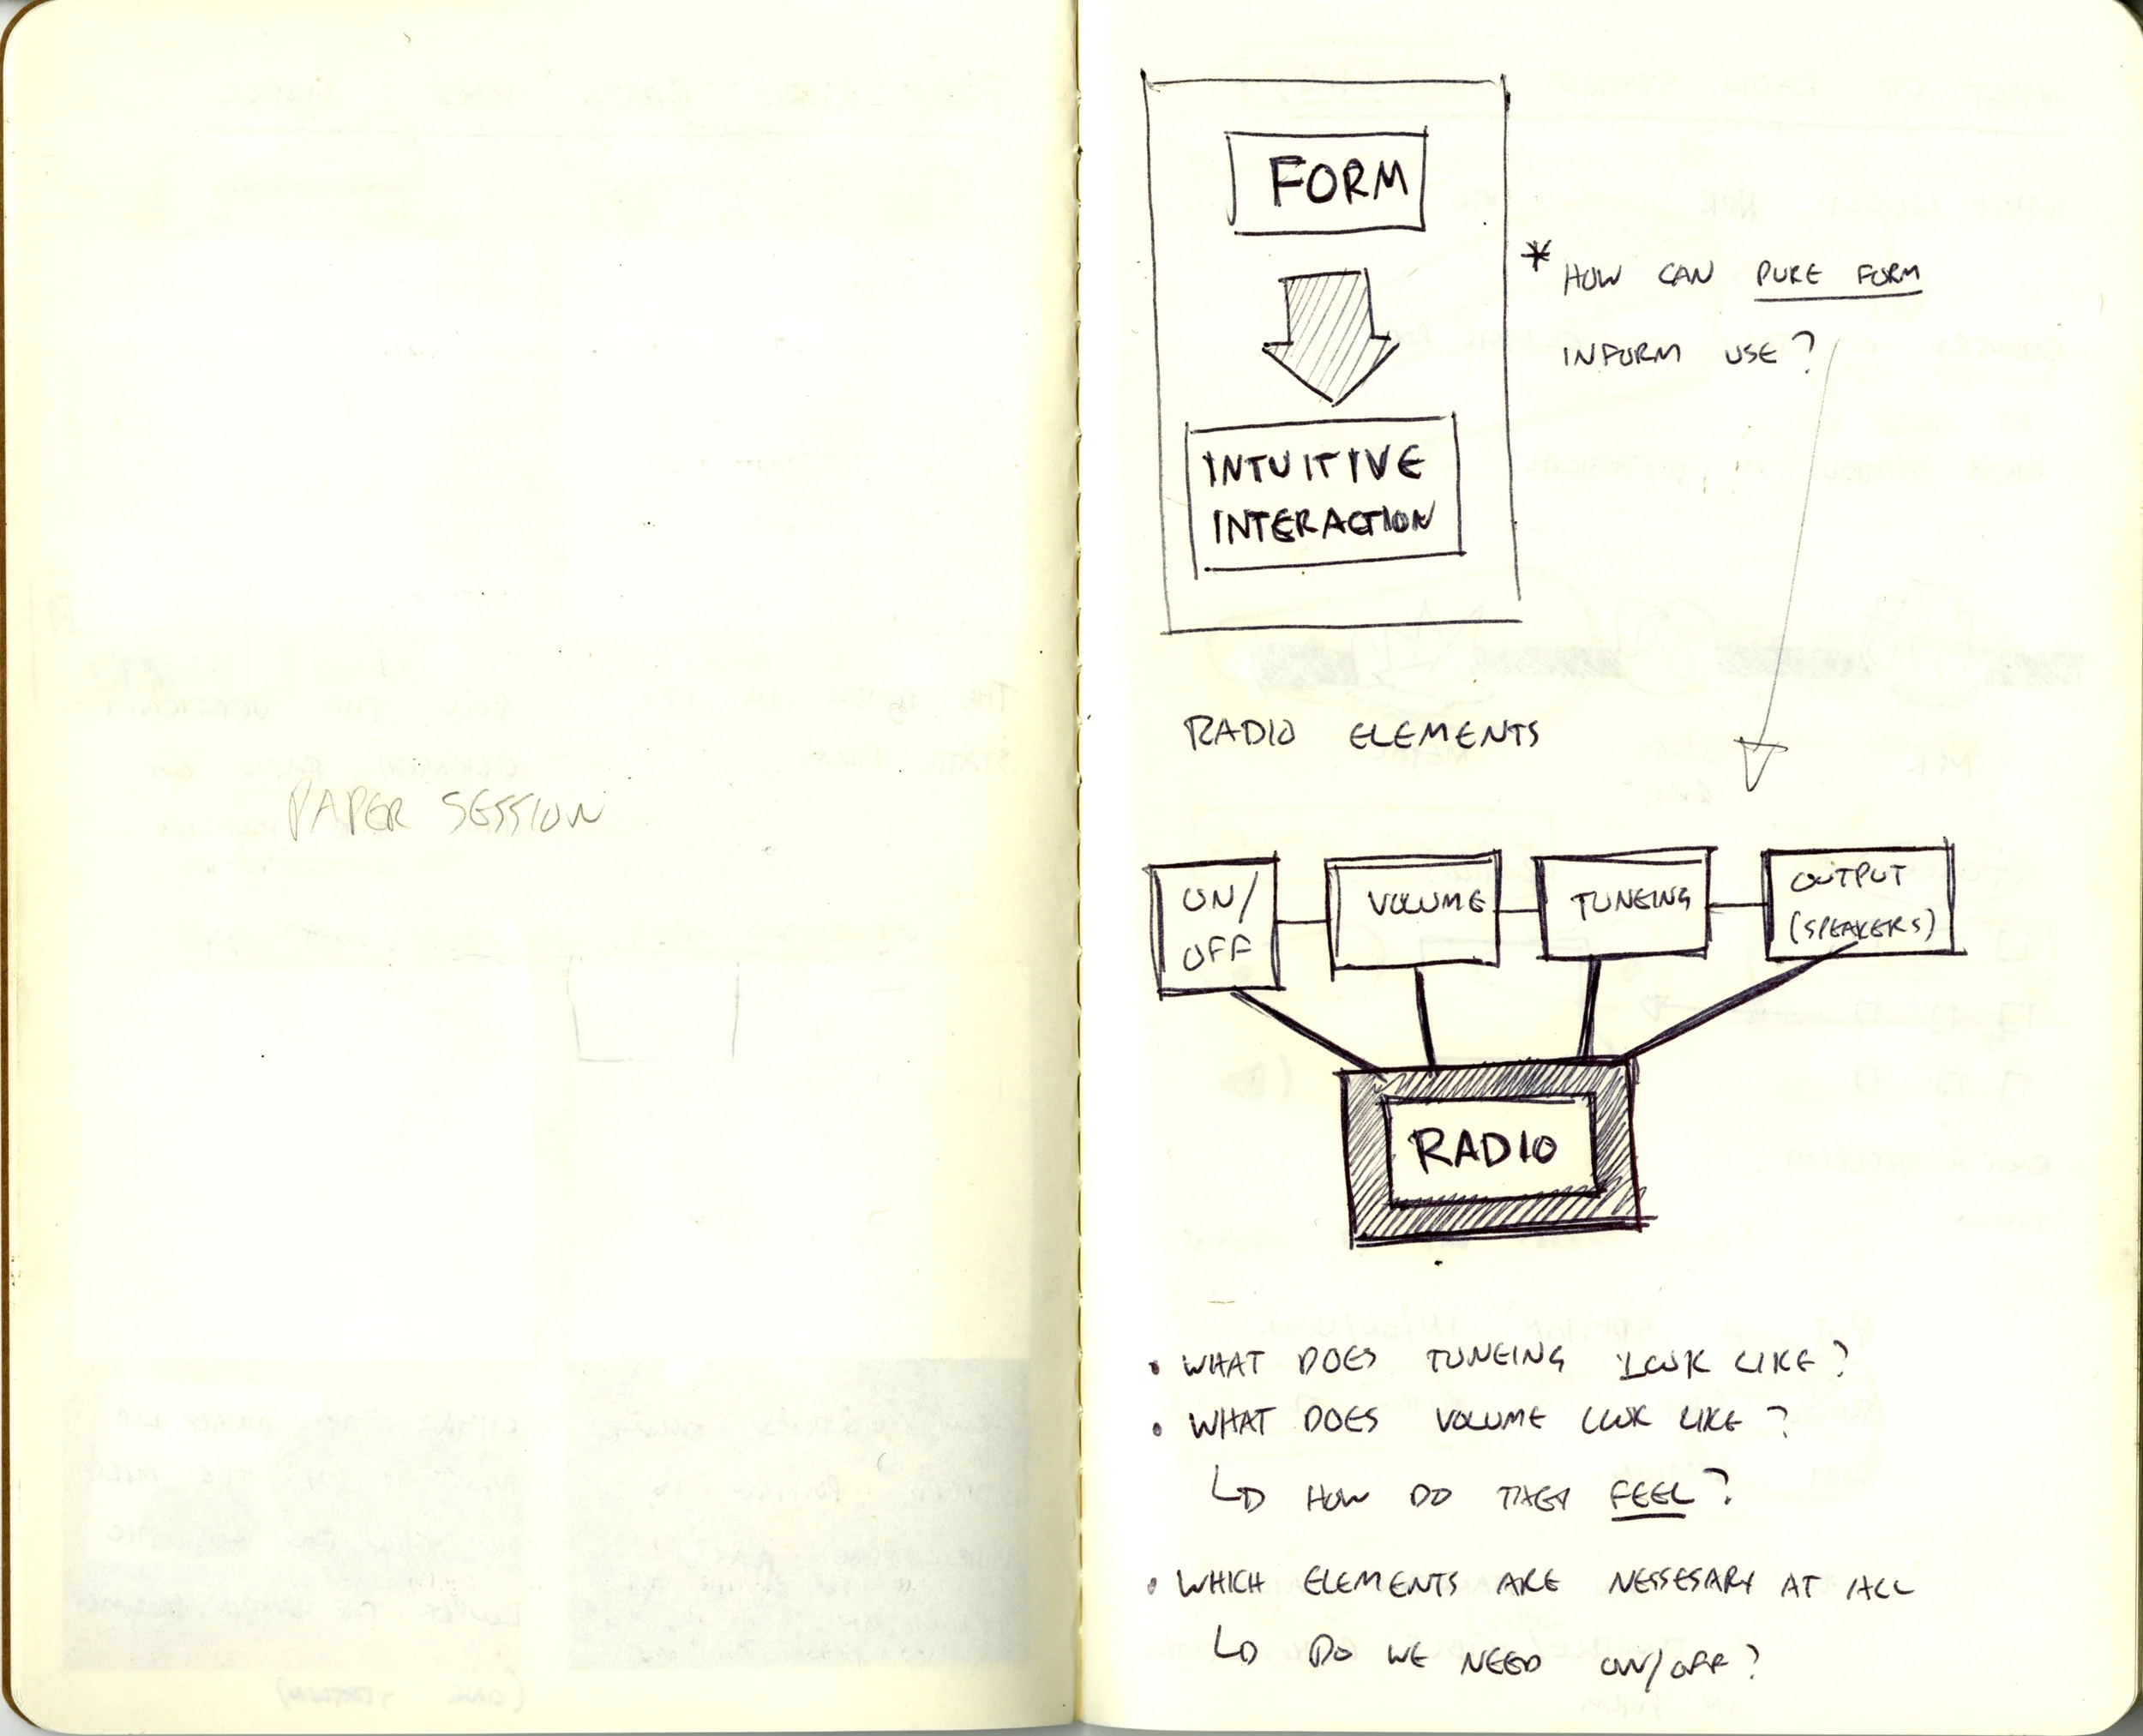 PAPER SESSION
FORM
* HOW CAN PURE FORM
INFORM USE?
INTUITIVE
INTERACTION
RADIO ELEMENTS
ON/
OFF
VOLUME
TUNEING
OUTPUT
(SPEAKERS)
RADIO
• WHAT DOES TUNEING LOOK LIKE?
• WHAT DOES VOLUME LOOK LIKE?
HOW DO THEY FEEL?
• WHICH ELEMENTS ARE NESSESARY AT ALL
DO WE NEED ON/OFF?